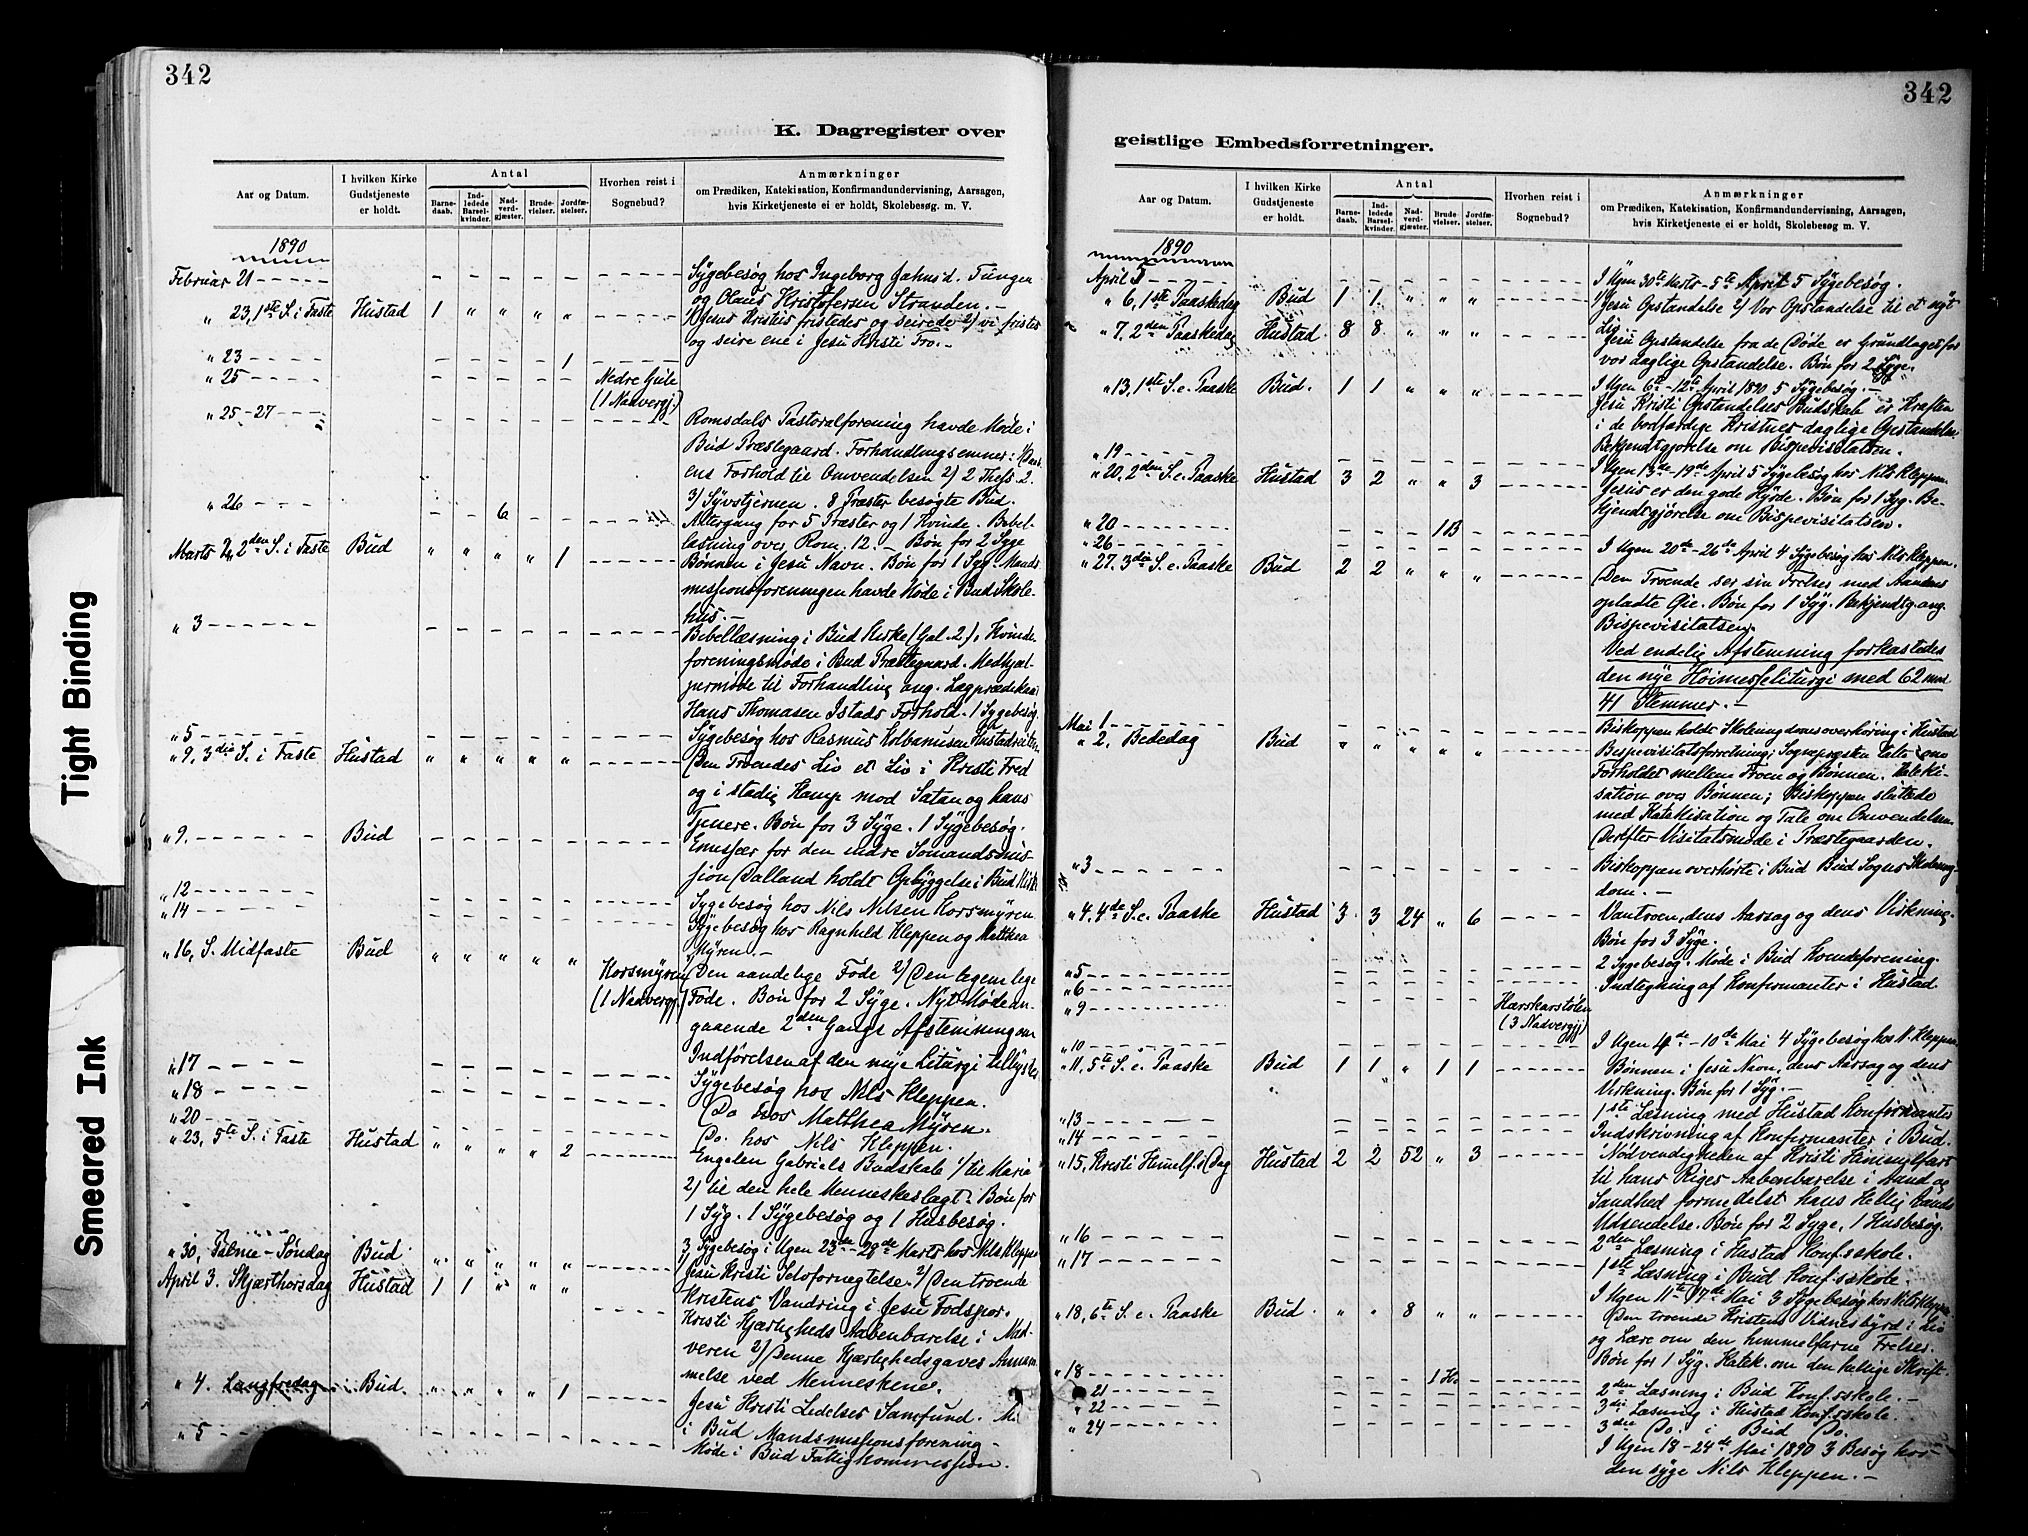 342
K. Dagregister over
Aar og Datum.
I hvilken Kirke Gudstjeneste er holdt.
Antal
Barnedaab.
Indledede Barselkvinder.
Nadverdgjæster.
Brudevielser.
Jordfæstelser.
Hvorhen reist i Sognebud?
Anmærkninger
om Prædiken, Katekisation, Konfirmandundervisning, Aarsagen,
hvis Kirketjeneste ei er holdt, Skolebesøg. m. V.
1890
Februar 21 Sygebesøg hos Ingeborg Tungen
og Olaus Kristofersen Stranden.
" 23, 1ste S. i Faste Hustad 1 " " " " 1) Jesus Kristus fristedes og seirede 2) vi fristes
og seire ene i Jesu Kristi Tro.
" 23 1
" 25 Nedre Gule
(1 Nadvergj.)
" 25-27 Romsdals Pastoralforening havde Møde i
Bud Præstegaard. Forhandlingsemner:
ens Forhold til Omvendelsen 2) 2 Thess. 2.
3) Syvstjernen. 8 Præster besøgte Bud.
" 26 6 Altergang for 5 Præster og 1 Kvinde. Bibel-
læsning over Rom. 12. – Bøn for 2 Syge
Marts 2, 2den S. i Faste Bud " " " " 1 Bønnen i Jesu Navn. Bøn for 1 Syg. Mands
missionsforeningen havde Møde i Bud Skole-
hus.
" 3 Bibellæsning i Bud Kirke (Gal. 2). Kvinde-
foreningsmøde i Bud Præstegaard. Medhjæl-
permøde til Forhandling ang. Lægprædikant
Hans Thomasen Istads Forhold. 1 Sygebesøg.
" 5 Sygebesøg hos Rasmus Kolbanusen
" 9, 3die S. i Faste Hustad " " " " " Den Troendes Liv et Liv i Kristi Fred
og i stadig Kamp mod Satan og hans
Tjenere. Bøn for 3 Syge. 1 Sygebesøg.
" 9, Bud Emissær for den indre Sømandsmis-
sion Dalland holdt Opbyggelse i Bud Kirke
" 12 Sygebesøg hos Nils Nilsen Korsmyren
" 14 Sygebesøg hos Ragnhild Kleppen og Matthea
Myren.
" 16, S. Midfaste Bud " " " " "
Korsmyren
(1 Nadvergj.)
Den aandelige Føde 2) Den legemlige
Føde. Bøn for 2 Syge. Nyt Møde an-
gaaende 2den Gangs Afstemning om
Indførelsen af den nye Liturgi tillystes
" 17 Sygebesøg hos Nils Kleppen.
" 18 Do hos Matthea Myren.
" 20 Do. hos Nils Kleppen.
" 23, 5te S. i Faste Hustad " " " " 2 Engelen Gabriels Budskab 1) til Maria
2) til den hele Menneskeslægt. Bøn for
1 Syg. 1 Sygebesøg og 1 Husbesøg.
" 30, Palme-Søndag Bud " " " " " 3 Sygebesøg i Ugen 23de-28de Marts hos Nils Kleppen
1) Jesu Kristi Selvfornegtelse. 2) Den troende
Kristens Vandring i Jesu Fodspor.
April 3. Skjærthorsdag Hustad 1 1 " " " Kristi Kjærligheds Aabenbarelse i Nad-
veren 2) Denne Kjærlighedsgaves Annam-
melse ved Menneskene.
" 4. Langfredag Bud " " " " 1 Jesu Kristi Lidelses Samfund.
i Bud Mandsmissionsforening
" 5 Møde i Bud Fattigkommission.
Tight Binding
Smeared Ink
342
geistlige Embedsforretninger.
Aar og Datum.
I hvilken Kirke Gudstjeneste er holdt.
Antal
Barnedaab.
Indledede Barselkvinder.
Nadverdgjæster.
Brudevielser.
Jordfæstelser.
Hvorhen reist i Sognebud?
Anmærkninger
om Prædiken, Katekisation, Konfirmandundervisning, Aarsagen,
hvis Kirketjeneste ei er holdt, Skolebesøg m. V.
1890
April 5 I Ugen 30te Marts - 5te April 5 Sygebesøg.
" 6, 1ste Paaskedag Bud 1 1 " " " 1) Jesu Opstandelse 2) Vor Opstandelse til et nyt
Liv
" 7. 2den Paaskedag Hustad 8 8 " " " Jesu Opstandelse fra de Døde er Grundlaget for
vor daglige Opstandelse. Bøn for 2 Syge.
I Ugen 6te-12te April 1890 5 Sygebesøg.
" 13, 1ste S. e. Paaske Bud. 1 1 " " " Jesu Kristi Opstandelses Budskab er Kraften
i de bodfærdige Kristnes daglige Opstandelse.
Bekjendtgjørelse om Bispevisitatsen.
" 19 I Ugen 13de-19de April 5 Sygebesøg hos Nils Kleppen
" 20, 2den S. e. Paaske Hustad 3 2 " " 3 Jesus er den gode Hyrde. Bøn for 1 Syg. Be-
kjendtgjørelse om Bispevisitatsen.
" 20 1 B
" 26 I Ugen 20de-26de April 4 Sygebesøg hos Nils Kleppen.
" 27. 3die S. e. Paaske Bud 2 2 " " " Den Troende ser sin Frelser med Aandens
opladte Øie. Bøn for 1 Syg. Bekjendtg. ang.
Bispevisitatsen.
Ved endelig Afstemning forkastedes
den nye Høimesseliturgi med 62 mod
41 Stemmer.
Mai 1 Biskoppen holdt Skoleungdomsoverhøring i Hustad
" 2, Bededag Bud " " " " " Bispevisitatsforretning; Sognepræsten talte om
Forholdet mellem Troen og Bønnen. Kateki-
sation over Bønnen; Biskoppen sluttede
med Katekisation og Tale om Omvendelsen.
Derefter Visitatsmøde i Præstegaarden.
" 3 Biskoppen overhørte i Bud Bud Sogns Skoleung-
dom.
" 4, 4de S. e. Paaske Hustad 3 3 24 " 6 Vantroen, dens Aarsag og dens Virkning.
Bøn for 3 Syge.
" 5 2 Sygebesøg. Møde i Bud Kvindeforening.
" 6 Indtegning af Konfirmanter i Hustad
" 9 Harskarstolen
(3 Nadvergj.)
" 10 I Ugen 4de-10de Mai 4 Sygebesøg hos N. Kleppen
" 11, 5te S. e. Paaske Bud 1 1 " 1 1 Bønnen i Jesu Navn, dens Aarsag og dens
Virkning. Bøn for 1 Syg.
" 13 1ste Læsning med Hustad Konfirmanter
" 14 Indskrivning af Konfirmanter i Bud.
" 15, Kristi Himmelf.s Dag Hustad 2 2 52 " 3 Nødvendigheden af Kristi Himmelfart
til hans Riges Aabenbarelse i Aand og
Sandhed formedelst hans Hellig Aands
Udsendelse. Bøn for 2 Syge, 1 Husbesøg.
" 16 2den Læsning i Hustad Konf.sskole.
" 17 1ste Læsning i Bud Konf.sskole.
I Ugen 11te-17de Mai 3 Sygebesøg hos Nils Kleppen
" 18, 6te S. e. Paaske Bud " " 8 " " Den troende Kristens Vidnesbyrd i Liv
og Lære om den himmelfarne Frelser.
Bøn for 1 Syg. Katek. om den hellige Skrift.
" 18 1 H.
" 21 2den Læsning i Bud Konf.sskole.
" 22 3die Læsning i Hustad Konf.sskole.
" 24 3die Do. i Bud Do.
I Ugen 18-24de Mai 1890 3 Besøg hos
den syge Nils Kleppen.